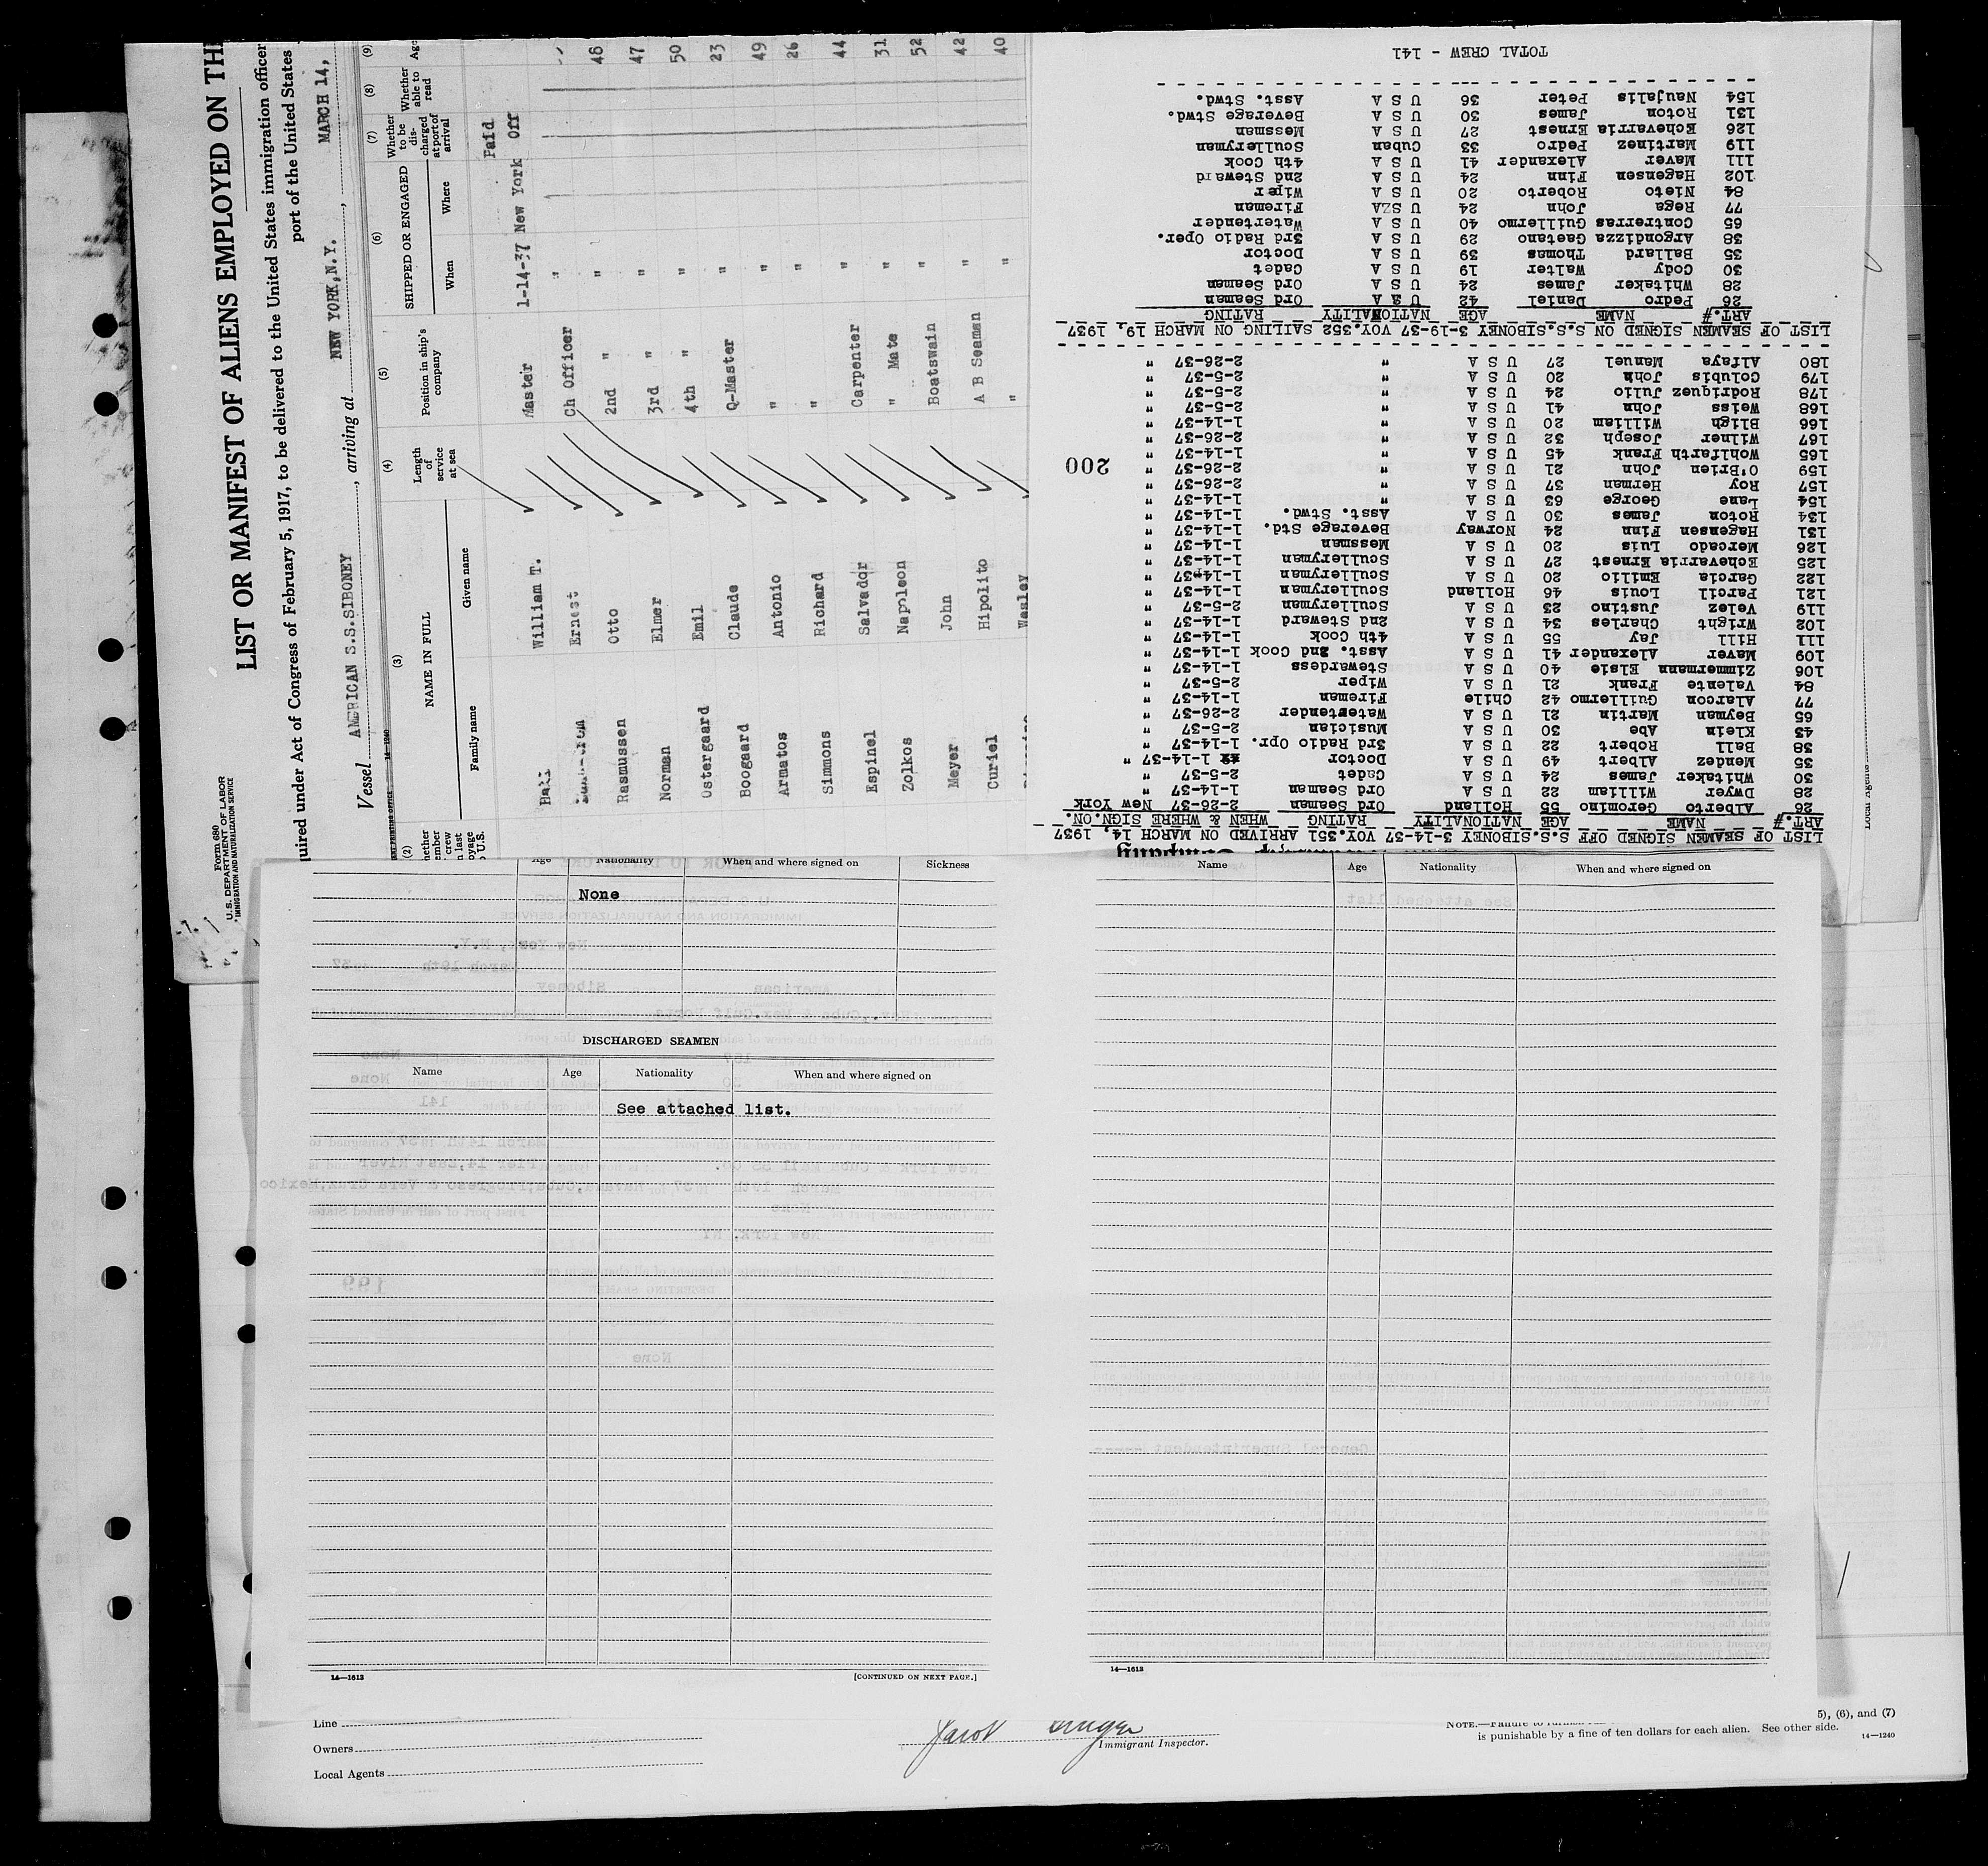 Form 680
U. S. DEPARTMENT OF LABOR
IMMIGRATION AND NATURALIZATION SERVICE
LIST OR MANIFEST OF ALIENS EMPLOYED ON TH
quired under Act of Congress of February 5, 1917, to be delivered to the United States immigration officer
port of the United States
Vessel AMERICAN S.S.SIBONEY, arriving at NEW YORK,N.Y., MARCH 14,
14—1240
(2) (3) (4) (5) (6) (7) (8) (9)
NAME IN FULL
Family name Given name
Length of service at sea
Position in ship's company
SHIPPED OR ENGAGED
When Where
Whether to be dis-charged at port of arrival
Whether able to read
Age
Paid
William T. Master 1-14-37 New York Off
Ernest Ch Officer " 48
Rasmussen Otto 2nd " " 47
Norman Elmer 3rd " " 50
Ostergaard Emil 4th " " 23
Boogaard Claude Q-Master " 49
Armatos Antonio " " 26
Simmons Richard " " 44
Espinel Salvador Carpenter " 31
Zolkos Napoleon " Mate " 52
Meyer John Boatswain " 42
Curiel Hipolito A B Seaman " 40
Wasley "
LIST OF SEAMEN SIGNED OFF S.S.SIBONEY 3-14-37 VOY.351 ARRIVED ON MARCH 14, 1937
ART.# NAME AGE NATIONALITY RATING WHEN & WHERE SIGN.ON.
26 Alberto Geromino 55 Holland Ord Seaman 2-26-37 New York
28 Dwyer William 22 U S A Ord Seaman 1-14-37 "
30 Whitaker James 24 U S A Cadet 2-5-37 "
35 Mendez Albert 49 U S A Doctor 1-14-37 "
38 Ball Robert 22 U S A 3rd Radio Opr. 1-14-37 "
43 Klein Abe 30 U S A Musician 2-5-37 "
65 Beyman Martin 21 U S A Watertender 2-26-37 "
77 Alarcon Guillermo 42 Chile Fireman 1-14-37 "
84 Valente Frank 21 U S A Wiper 2-5-37 "
106 Zimmermann Elsie 40 U S A Stewardess 1-14-37 "
109 Mayer Alexander 41 U S A Asst. 2nd Cook 1-14-37 "
111 Hill Jay 55 U S A 4th Cook 1-14-37 "
102 Wright Charles 34 U S A 2nd Steward 1-14-37 "
119 Velez Justino 23 U S A Sculleryman 2-5-37 "
121 Parcll Louis 46 Holland Sculleryman 1-14-37 "
122 Garcia Emilio 20 U S A Sculleryman 1-14-37 "
125 Echevarria Ernest 27 U S A Sculleryman 1-14-37 "
126 Mercado Luis 20 U S A Messman 1-14-37 "
131 Hagensen Finn 24 Norway Beverage Std. 1-14-37 "
134 Roton James 30 U S A Asst. Stwd. 1-14-37 "
154 Lane George 63 U S A " 1-14-37 "
157 Roy Herman 37 U S A " 2-26-37 "
159 O'Brien John 21 U S A " 2-26-37 "
165 Wohlfarth Frank 45 U S A " 1-14-37 "
167 Wilner Joseph 32 U S A " 2-26-37 "
166 Bligh William 20 U S A " 1-14-37 "
168 Weiss John 41 U S A " 2-5-37 "
178 Rodriquez Julio 24 U S A " 2-5-37 "
179 Golubis John 20 U S A " 2-5-37 "
180 Alfaya Manuel 27 U S A " 2-26-37 "
200
LIST OF SEAMEN SIGNED ON S.S.SIBONEY 3-19-37 VOY.352 SAILING ON MARCH 19, 1937
ART.# NAME AGE NATIONALITY RATING
26 Pedro Daniel 42 U S A Ord Seaman
28 Whitaker James 24 U S A Ord Seaman
30 Cody Walter 19 U S A Cadet
35 Ballard Thomas 39 U S A Doctor
38 Argondizza Gaetano 29 U S A 3rd Radio Oper.
65 Contrerras Guillermo 40 U S A Watertender
77 Rega John 24 USZA Fireman
84 Nieto Roberto 20 U S A Wiper
102 Hagensen Finn 24 U S A 2nd Steward
111 Mayer Alexander 41 U S A 4th Cook
119 Martinez Pedro 33 Cuban Sculleryman
126 Echevarria Ernest 27 U S A Messman
131 Roton James 30 U S A Beverage Stwd.
154 Naujalis Peter 36 U S A Asst. Stwd.
TOTAL CREW - 141
Age Nationality When and where signed on Sickness
None
DISCHARGED SEAMEN
Name Age Nationality When and where signed on
See attached list.
14—1613 [CONTINUED ON NEXT PAGE.]
Name Age Nationality When and where signed on
14—1613
Line
Owners
Local Agents
Jacob
Immigrant Inspector.
5), (6), and (7)
NOTE.—Failure to
is punishable by a fine of ten dollars for each alien. See other side.
14—1240